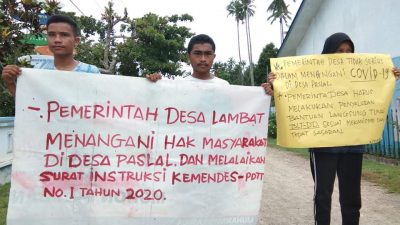 -. PEMERINTAH DESA LAMBAT
MENANGANI HAK MASYARAKAT
DI DESA PASLAL. DAN MELALAIKAN
SURAT INSTRUKSI KEMENDES-PDTT
NO. 1 TAHUN 2020.
PEMERINTAH DESA TIDAK SERIUS
DALAM MENANGANI COVID-19
DI DESA PASLAL
PEMERINTAH DESA HARUS
MELAKUKAN PENYALURAN
BANTUAN LANGSUNG TUNAI
BLT-DD SESUAI MEKANISME DAN
TEPAT SASARAN